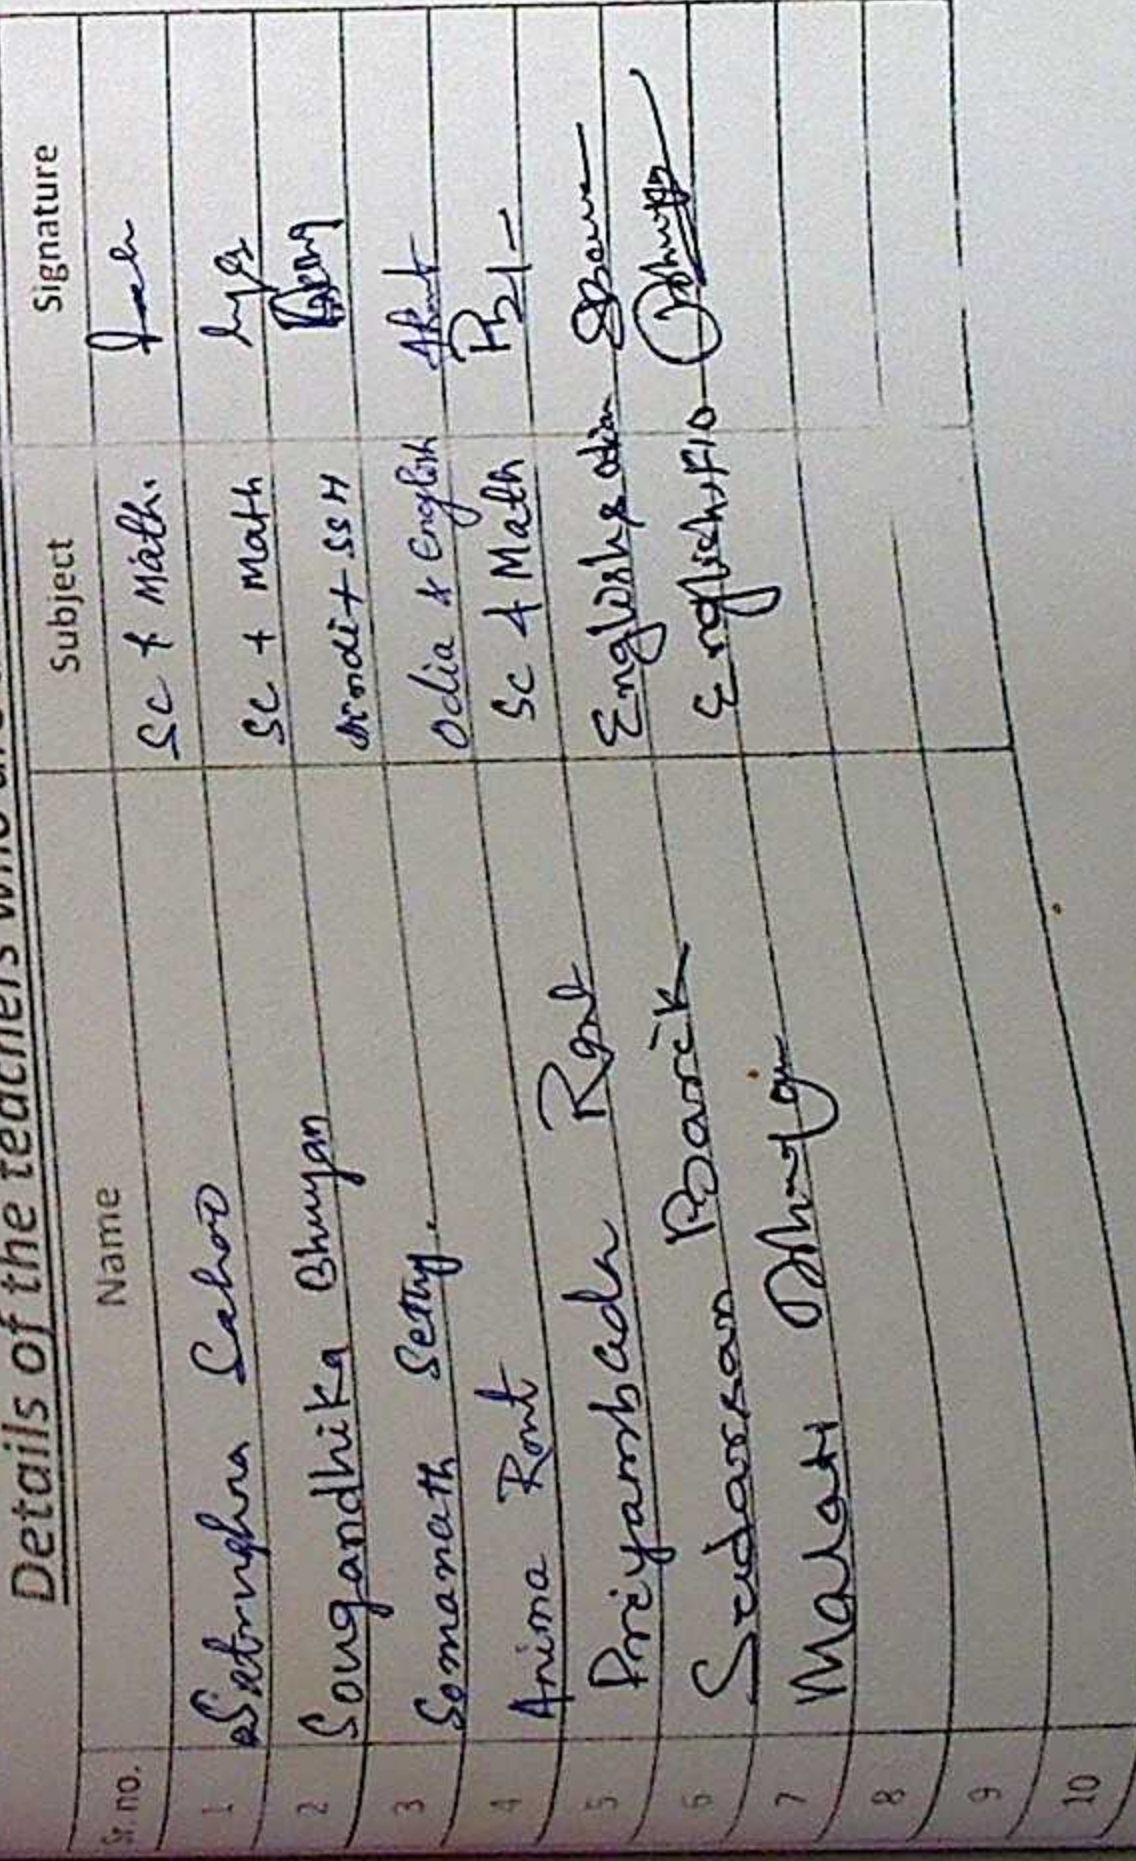 Details of the teachers who
Sr. no. Name Subject Signature
1 Satrughna Sahoo Sc & Math.
2 Sougandhika Bhuyan Sc + Math
3 Somanath Sethy. Hindi + SSH
4 Anima Rout Odia & English
5 Priyambada Rout Sc & Math
6 Sudarsan Barik English & odia
7 Malati English,
8
9
10